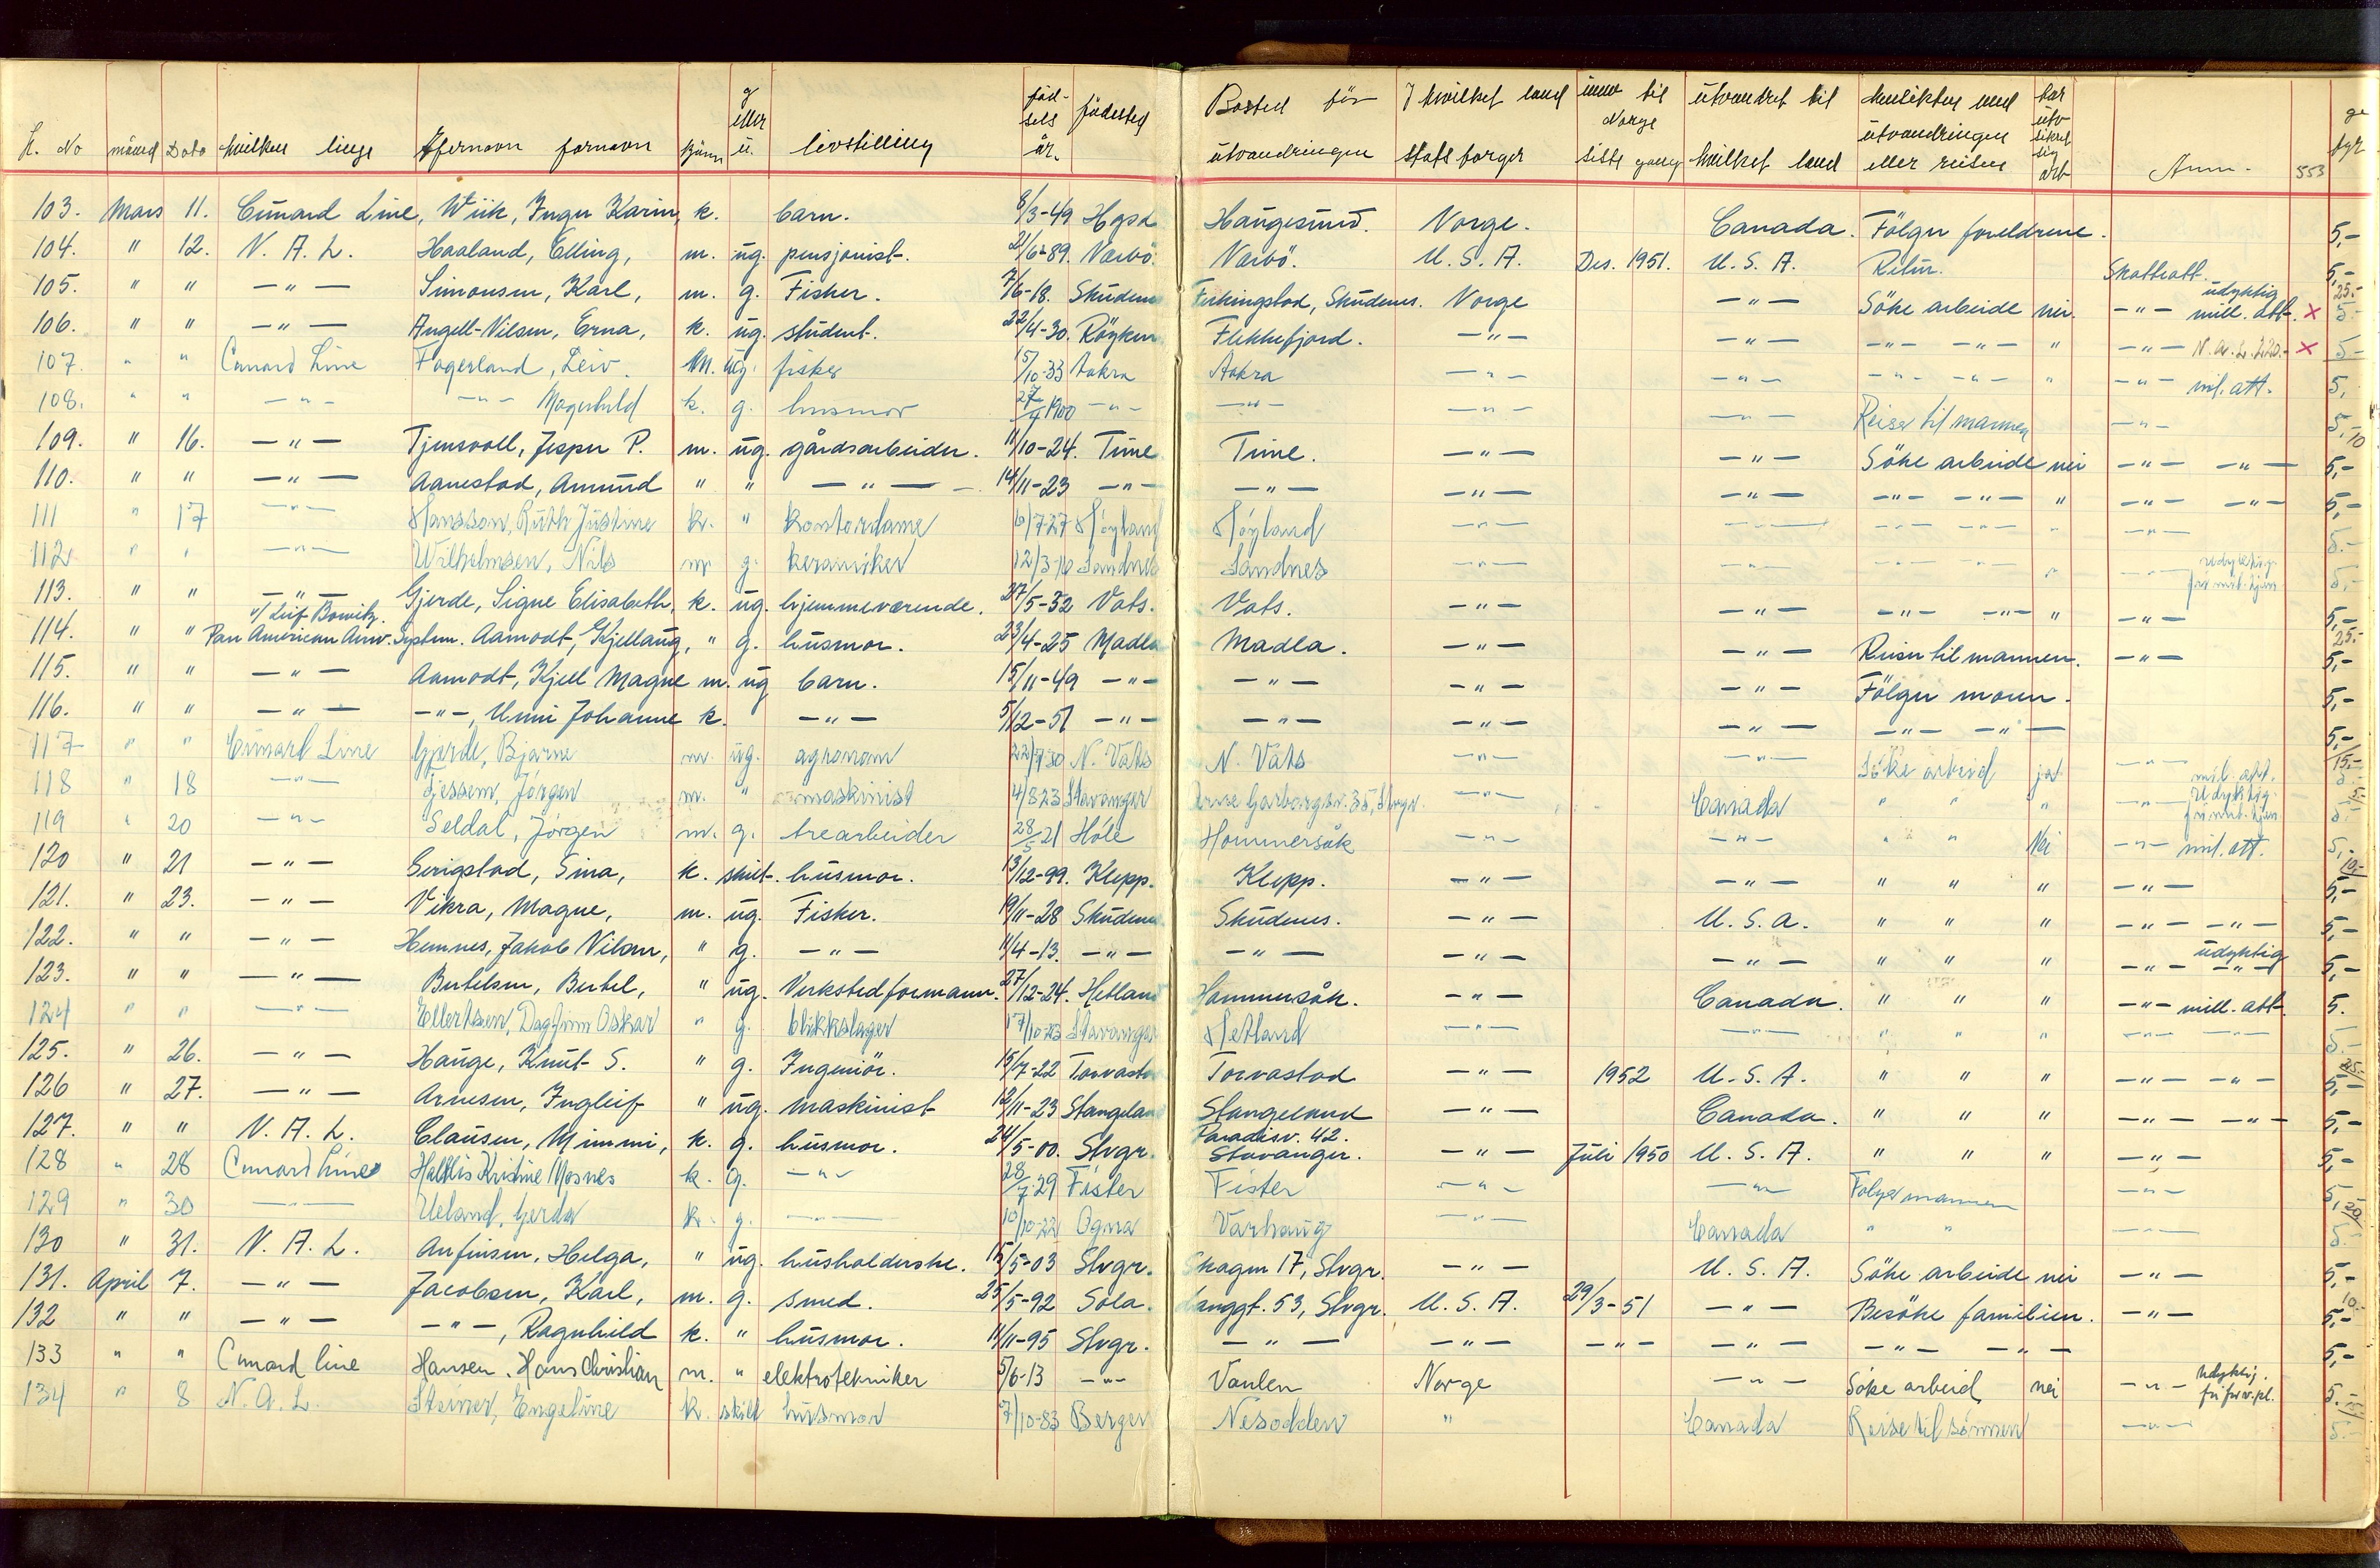 L. No måned Dato hvilken linje Efternavn fornavn kjønn g eller u. livstilling fød-sels år. födested Bosted för utvandringen I hvilket land statsborger innv til Norge siste gang utvandret til hvilket land hensikten med utvandringen eller reisen har utv sikret sig arb Anm. 553 ge byr
103. Mars 11. Cunard Line, Wiik, Inger Karin, k. barn. 8/3-49 Hgsd Haugesund. Norge. Canada. Fölger foreldrene. 5,-
104. " 12. N. A. L. Haaland, Elling, m. ug. pensjonist. 21/6-89. Nærbö. Nærbö. U. S. A. Des. 1951. U. S. A. Retur. Skatteatt. 5,-
105. " " -"- Simonsen, Karl, m. g. Fisker. 7/6-18. Skudenes Ferkingstad, Skudenes. Norge -"- Söke arbeide nei. -"- udyktig mill. att. x 25.- 5.-
106. " " -"- Angell-Nilsen, Erna, k. ug. student. 22/4-30. Röyken Flekkefjord. -"- -"- -"- -"- " -"- N.A.L. 220.- x 5-
107. " " Cunard Line Fagerland, Leiv. m. ug. fisker 15/10-33 Aakra Aakra -"- -"- -"- -"- " -"- mil. att. 5,
108. " " -"- -"- Magnhild k. g. husmor 27/9 1900 -"- -"- -"- -"- Reiser til mannen -"- 5,10
109. " 16. -"- Tjensvoll, Jesper P. m. ug. gårdsarbeider. 11/10-24. Time Time. -"- -"- Söke arbeide nei -"- -"- 5,-
110. " " -"- Aanestad, Amund " " -"- 14/11-23 -"- -"- -"- -"- -"- -"- " -"- -"- 5,-
111 " 17 -"- Hansson, Ruth Justine k. " kontordame 6/7-27 Höyland Höyland -"- -"- -"- -"- " -"- 5.-
112 " " -"- Wilhelmsen, Nils m. g. keramiker 12/3-16 Sandnes Sandnes -"- -"- -"- -"- " -"- udyktig. fri mil. tjen. 5,-
113. " " -"- Gjerde, Signe Elisabeth, k. ug. hjemmeværende. 27/5-32 Vats. Vats. -"- -"- -"- -"- " -"- 5,-
v/ Leif Bowitz.
114. " " Pan American Airw. System. Aamodt, Kjellaug, " g. husmor. 23/4-25 Madla Madla. -"- -"- Reiser til mannen. -"- 25.- 5,-
115. " " -"- Aamodt, Kjell Magne m. ug barn. 15/11-49 -"- -"- -"- -"- Fölger moren. 5,-
116. " " -"- -"-, Unni Johanne k. -"- 5/12-51 -"- -"- -"- -"- -"- -"- 5,-
117 " " Cunard Line Gjerde, Bjarne m. ug. agronom 22/7-30 N. Vats N. Vats -"- -"- Söke arbeid ja -"- mil. att. 15,- 5.-
118 " 18 -"- Tjessem, Jörgen m. " maskinist 4/8-23 Stavanger Arne Garborgsv. 35, Stvgr. -"- Canada " " " -"- Udyktig. fri mil. tjen. 5.-
119 " 20 -"- Seldal, Jörgen m. g. trearbeider 28/5 21 Höle Hommersåk -"- -"- " " Nei -"- mil. att. 5,-
120 " 21 -"- Serigstad, Sina, k. skilt. husmor. 13/12-99. Klepp. Klepp. -"- -"- " " " -"- 10,- 5,-
121. " 23. -"- Vikra, Magne, m. ug. Fisker. 19/11-28 Skudenes Skudenes. -"- U. S. A. " " " -"- -"- 5,-
122. " " -"- Hemnes, Jakob Nilsen, " g. -"- 11/4-13. -"- -"- -"- -"- " " " -"- udyktig -"- 5,-
123. " " -"- Bertelsen, Bertel, " ug. Verkstedformann. 27/12-24. Hetland Hommersåk. -"- Canada. " " " -"- mill. att. 5.
124 " " -"- Ellertsen, Dagfinn Oskar " g. blikkslager 17/10-23 Stavanger Hetland -"- -"- " " " -"- -"- 5.-
125. " 26. -"- Hauge, Knut S. " g. Ingeniör. 15/7-22 Torvastad Torvastad -"- 1952 U. S. A. " " " -"- -"- 25.- 5,-
126 " 27. -"- Arnesen, Ingleif " ug. maskinist 12/11-23 Stangeland Stangeland -"- Canada. " " " -"- -"- 5,-
127. " " N. A. L. Clausen, Mimmi, k. g. husmor. 24/5-00. Stvgr. Paradisv. 42. Stavanger. -"- Juli 1950 U. S. A. " " " -"- 5,-
128 " 28 Cunard Line Halldis Kristine Mosnes k. g. -"- 28/7-29 Fister Fister -"- -"- Følge mannen -"- 5,20
129 " 30 -"- Ueland, Gerda k. g. -"- 10/10-22 Ogna Varhaug -"- Canada " " -"- 5.-
130 " 31. N. A. L. Anfinsen, Helga, " ug. husholderske. 15/5-03 Stvgr. Skagen 17, Stvgr. -"- U. S. A. Söke arbeide nei -"- 5,-
131. April 7. -"- Jacobsen, Karl, m. g. smed. 25/5-92 Sola. Langgt. 53, Stvgr. U. S. A. 29/3-51 -"- Besöke familien. -"- 10.- 5,-
132 " " -"- -"-, Ragnhild k. " husmor. 11/11-95 Stvgr. -"- -"- -"- -"- -"- -"- 5,-
133 " " Cunard line Hansen, Hans Christian m. " elektrotekniker 5/6-13 -"- Vaulen Norge -"- Søke arbeid nei -"- Udyktig. fri for v.pl. 5.-
134 " 8 N. A. L. Steiner, Engeline k. skilt husmor 7/10-83 Bergen Nesodden " Canada Reise til sønnen -"- 5.-